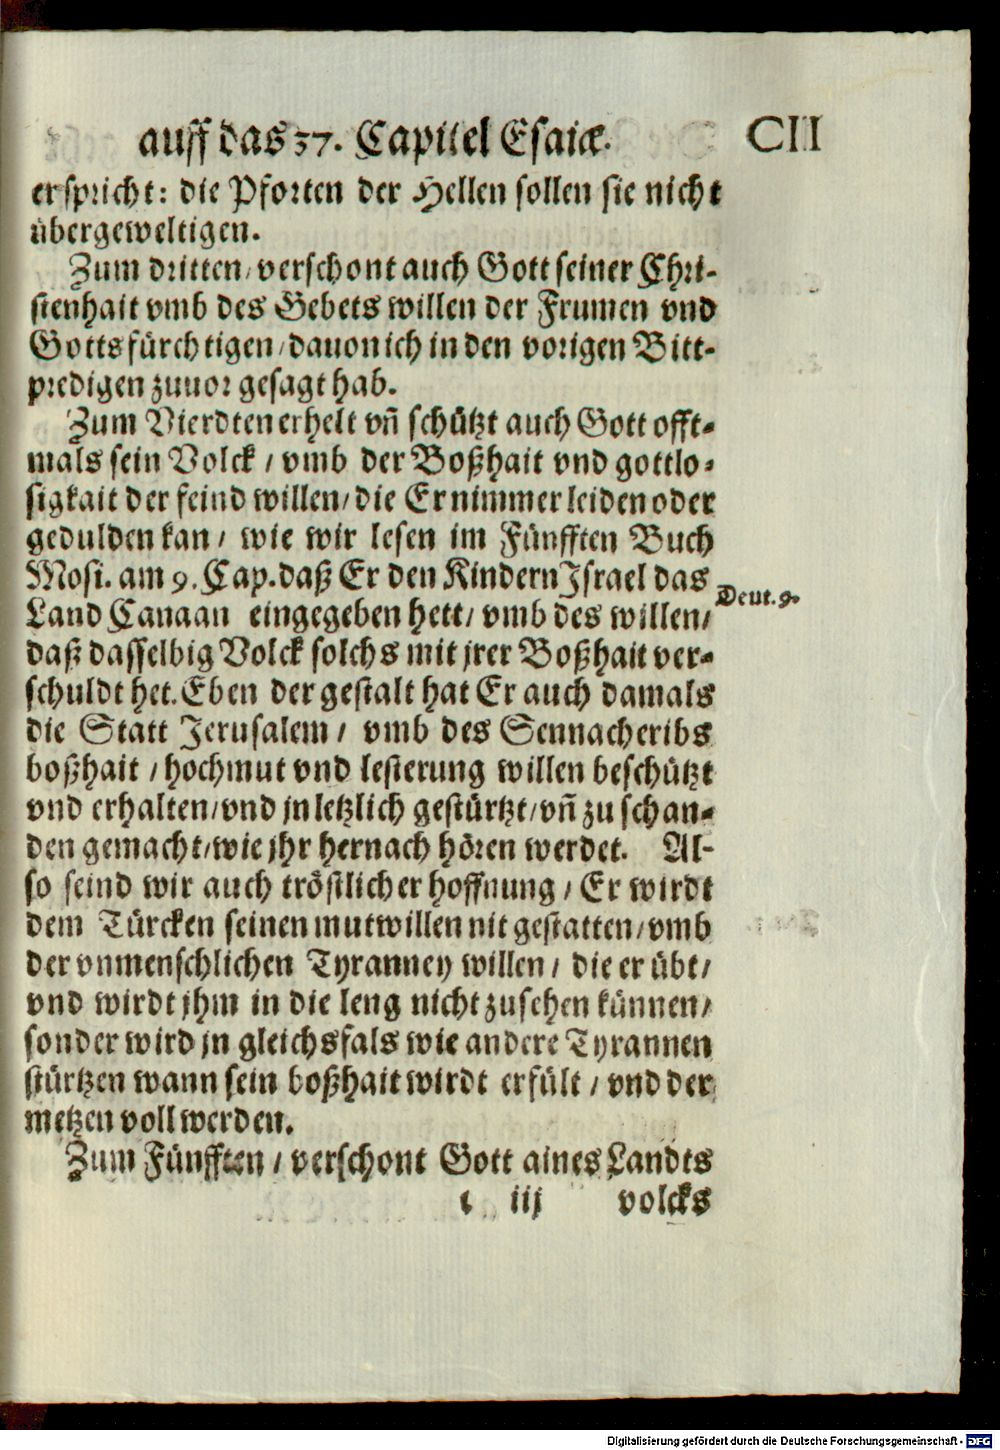 auff das 37. Capitel Esaiæ. CII
er spricht: die Pforten der Hellen sollen sie nicht
übergeweltigen.
Zum dritten/ verschont auch Gott seiner Chri-
stenhait vmb des Gebets willen der Frumen vnd
Gottsfürchtigen/ dauon ich in den vorigen Bitt-
predigen zuuor gesagt hab.
Zum Vierdten erhelt vñ schützt auch Gott offt-
mals sein Volck / vmb der Boßhait vnd gottlo-
sigkait der feind willen/ die Er nimmer leiden oder
gedulden kan / wie wir lesen im Fünfften Buch
Mosi. am 9. Cap. daß Er den Kindern Israel das
Deut. 9.
Land Canaan eingegeben hett/ vmb des willen/
daß dasselbig Volck solchs mit jrer Boßhait ver-
schuldt het. Eben der gestalt hat Er auch damals
die Statt Jerusalem / vmb des Sennacheribs
boßhait / hochmut vnd lesterung willen beschützt
vnd erhalten/ vnd jn letzlich gestürtzt/ vñ zu schan-
den gemacht/ wie jhr hernach hören werdet. Al-
so seind wir auch tröstlicher hoffnung / Er wirdt
dem Türcken seinen mutwillen nit gestatten/ vmb
der vnmenschlichen Tyranney willen / die er übt/
vnd wirdt jhm in die leng nicht zusehen künnen/
sonder wird jn gleichsfals wie andere Tyrannen
stürtzen wann sein boßhait wirdt erfült / vnd der
metzen voll werden.
Zum Fünfften / verschont Gott aines Landts
iij volcks
Digitalisierung gefördert durch die Deutsche Forschungsgemeinschaft - DFG